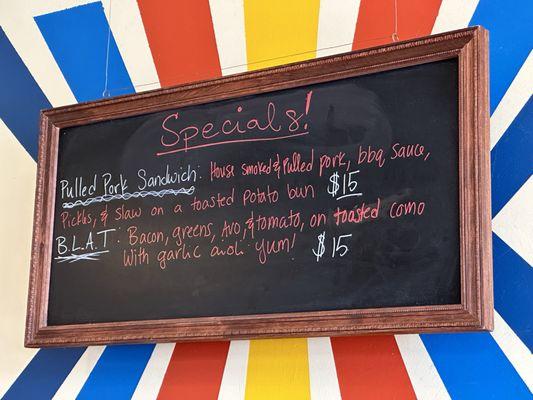 Specials!
Pulled Pork Sandwich: House smoked & Pulled pork, bbq sauce,
Pickles, & slaw on a toasted potato bun $15
B.L.A.T: Bacon, greens, Avo, & tomato, on toasted como
With garlic aioli Yum! $15